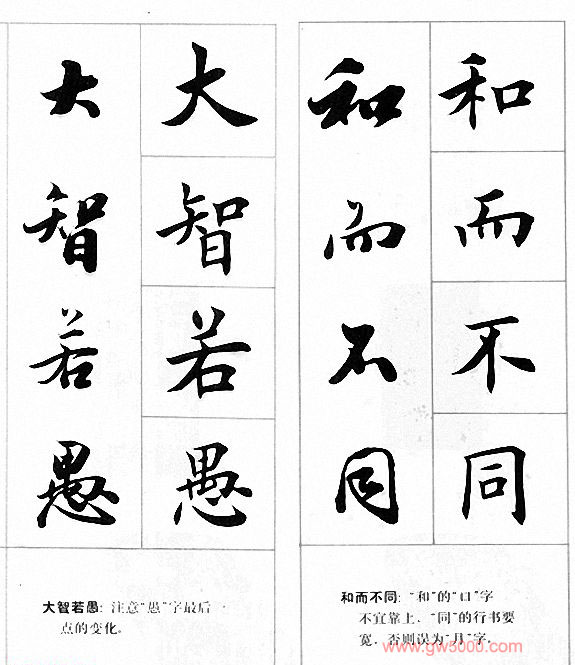 和而不同
和而不同
大智若愚
大智若愚
和而不同：“和”的“口”字
不宜靠上，“同”的行书要
宽，否则误为“月”字。
大智若愚：注意“愚”字最后一
点的变化。
www.gw5000.com